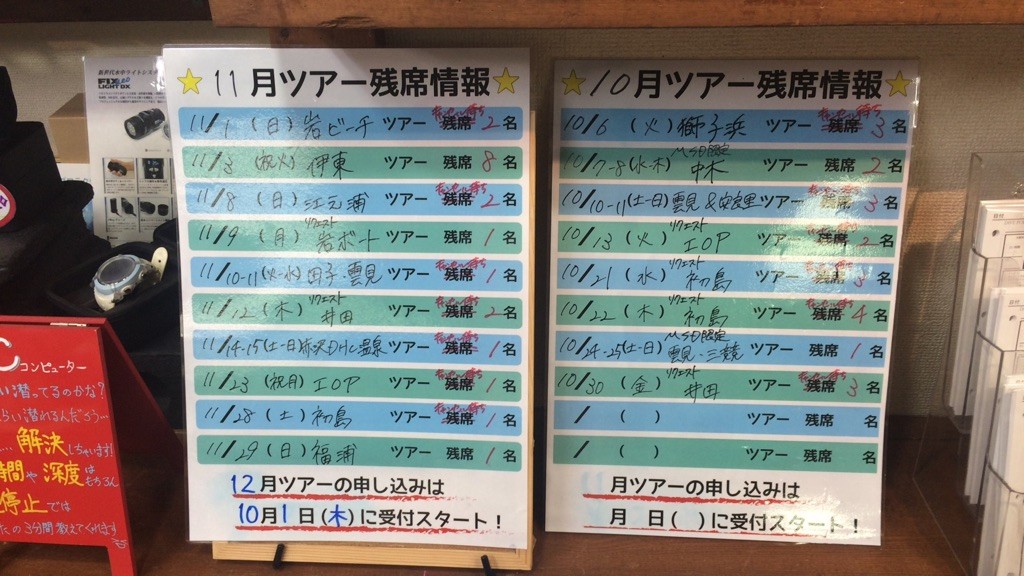 11月ツアー残席情報
11/1 (日) 岩ビーチ ツアー 残席 キャンセル待ち 2名
11/3 (祝火) 伊東 ツアー 残席 8名
11/8 (日) 江之浦 ツアー 残席 キャンセル待ち 2名
11/9 (月) リクエスト 岩ボート ツアー 残席 1名
11/10-11 (火-水) 田子 雲見 ツアー 残席 キャンセル待ち 1名
11/12 (木) リクエスト 井田 ツアー 残席 キャンセル待ち 2名
11/14-15 (土-日) 赤沢DHと温泉 ツアー 残席 キャンセル待ち 1名
11/23 (祝月) IOP ツアー 残席 キャンセル待ち 1名
11/28 (土) 初島 ツアー 残席 キャンセル待ち 1名
11/29 (日) 福浦 ツアー 残席 1名
12月ツアーの申し込みは
10月1日(木)に受付スタート!
10月ツアー残席情報
10/6 (火) 獅子浜 ツアー 残席 キャンセル待ち 3名
10/7-8 (水-木) MSD限定 中木 ツアー 残席 2名
10/10-11 (土-日) 雲見&安良里 ツアー 残席 キャンセル待ち 3名
10/13 (火) リクエスト IOP ツアー 残席 キャンセル待ち 2名
10/21 (水) リクエスト 初島 ツアー 残席 キャンセル待ち 3名
10/22 (木) リクエスト 初島 ツアー 残席 キャンセル待ち 4名
10/24-25 (土-日) MSD限定 雲見・三競 ツアー 残席 1名
10/30 (金) リクエスト 井田 ツアー 残席 キャンセル待ち 3名
/ ( ) ツアー 残席 名
/ ( ) ツアー 残席 名
月ツアーの申し込みは
月 日( )に受付スタート!
FIX
LIGHT DX
コンピューター
い潜ってるのかな?
らい潜れるんだろう…
… 解決しちゃいます!
時間や 深度はもちろん
停止では
たの3分間教えてくれます